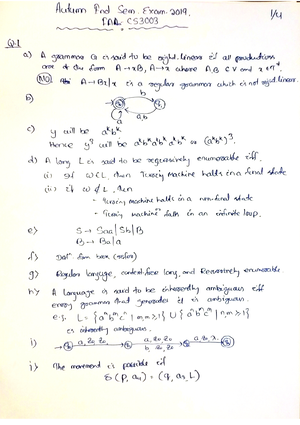 Autumn End Sem. Exam 2019.
FAA CS3003
1/4
Q.1
a) A grammar G is said to be right-linear if all productions
are of the form A→xB, A→x where A,B ∈ V and x ∈ T*.
NO A→Bx|x is a regular grammar which is not right linear.
b)
b
a a,b
c) y will be a^k b^k
Hence y³ will be a^k b^k a^k b^k a^k b^k or (a^k b^k)³.
d) A lang L is said to be recursively enumerable iff.
(i) if w ∈ L, then turing machine halts in a final state
(ii) if w ∉ L, then
- turing machine halts in a non-final state
- turing machine falls in an infinite loop.
e) S → Saa | Sb | B
B → Ba | a
f) from book (refer)
g) Regular language, context-free lang, and Recursively enumerable.
h) A language is said to be inherently ambiguous iff
every grammar that generates it is ambiguous.
e.g. L = { a^n b^n c^m | n,m ≥ 1 } ∪ { a^n b^m c^m | n,m ≥ 1 }
is inherently ambiguous.
i)
j) The movement is possible if